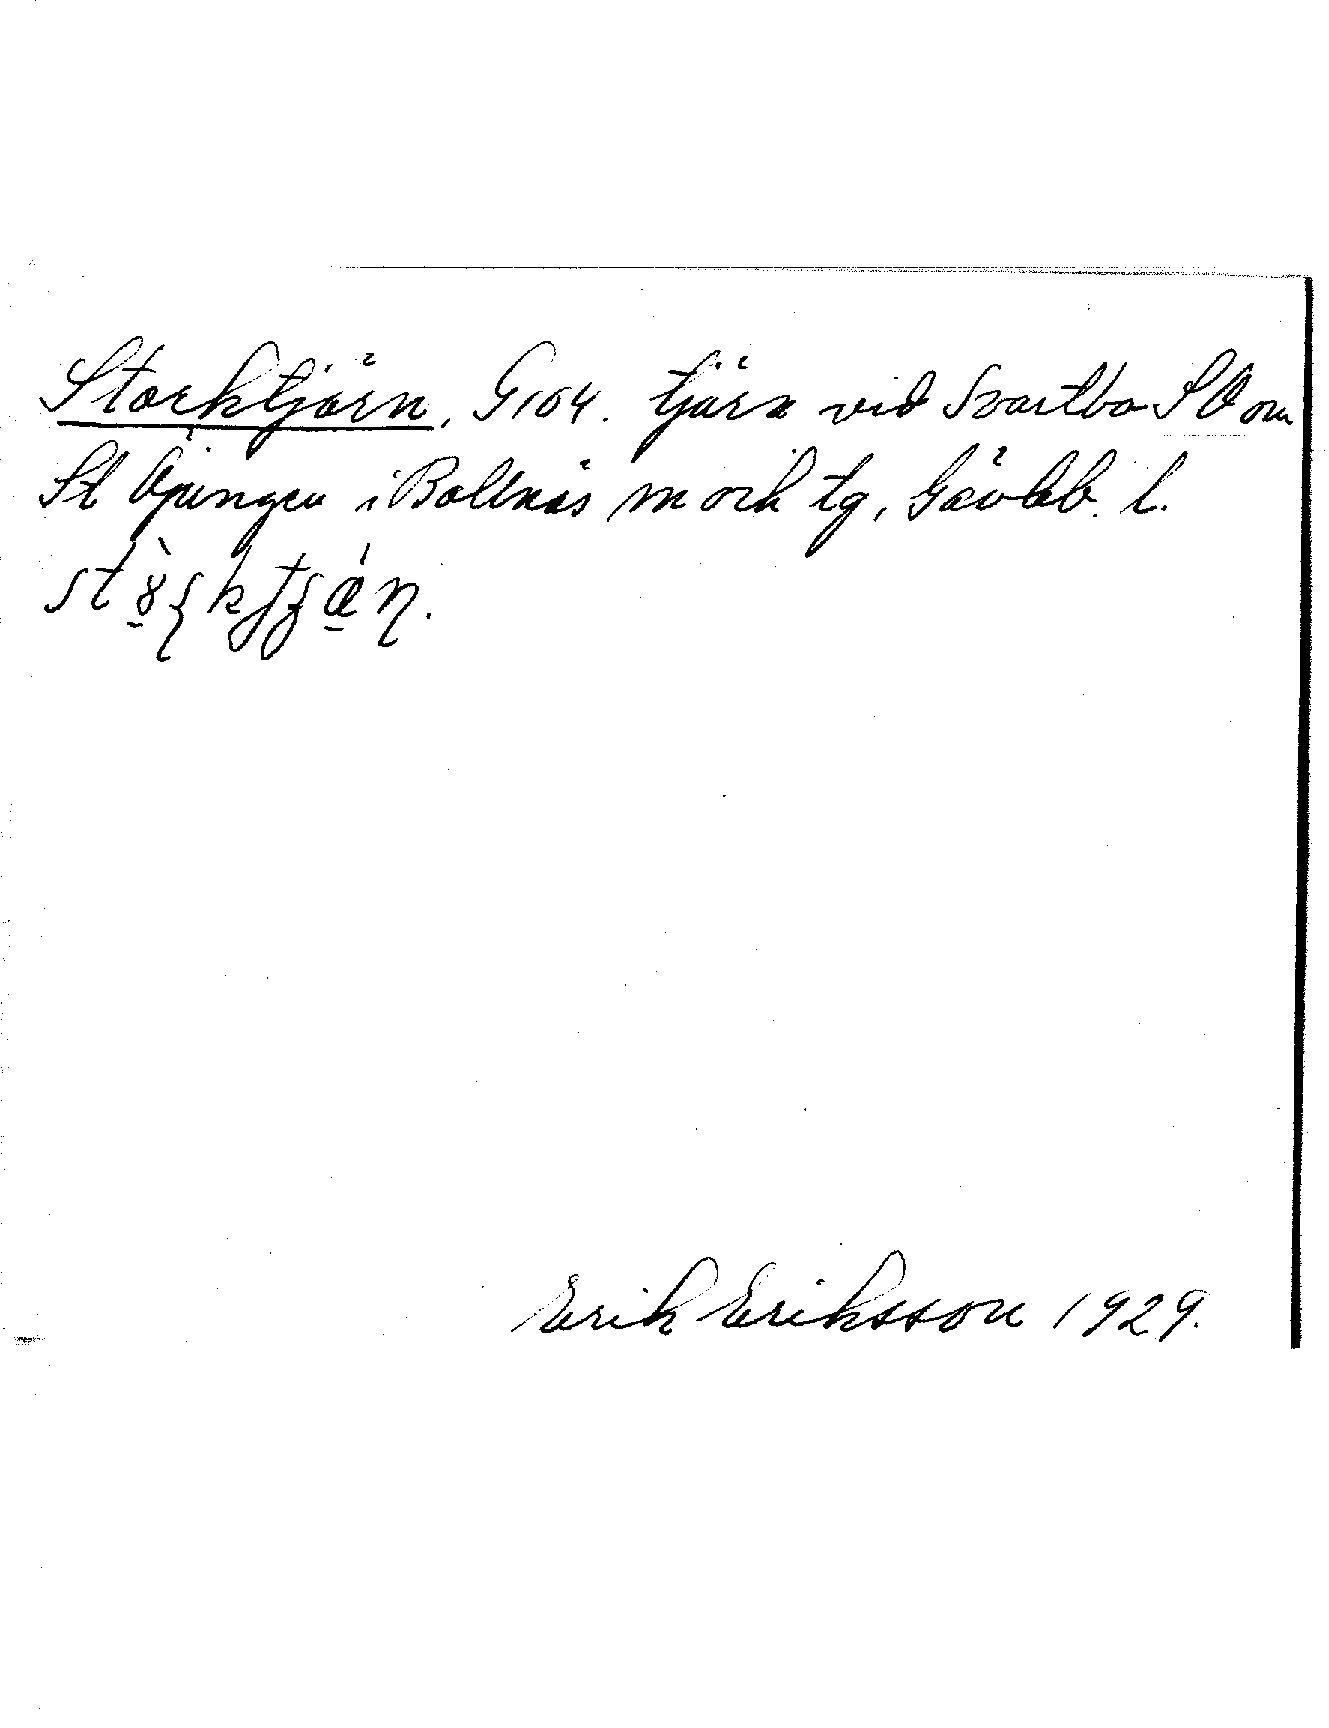 Storktjärn, G104. tjärn vid Svartbo SO om
St Öjungen i Bollnäs sn och tg, Gävleb. l.
Erik Eriksson 1929.